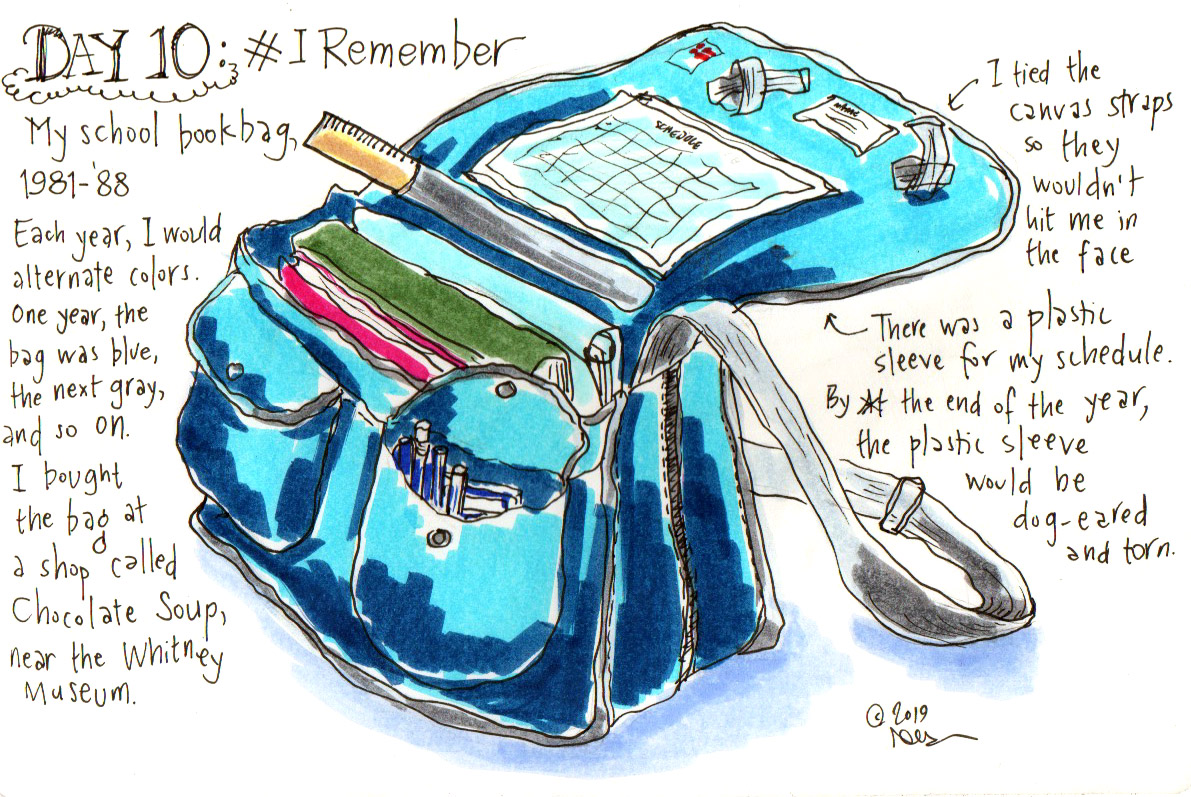 DAY 10: #I Remember
My school bookbag,
1981-'88
Each year, I would
alternate colors.
One year, the
bag was blue,
the next gray,
and so on.
I bought
the bag at
a shop called
Chocolate Soup,
near the Whitney
Museum.
SCHEDULE
I tied the
canvas straps
so they
wouldn't
hit me in
the face
There was a plastic
sleeve for my schedule.
By the end of the year,
the plastic sleeve
would be
dog-eared
and torn.
© 2019